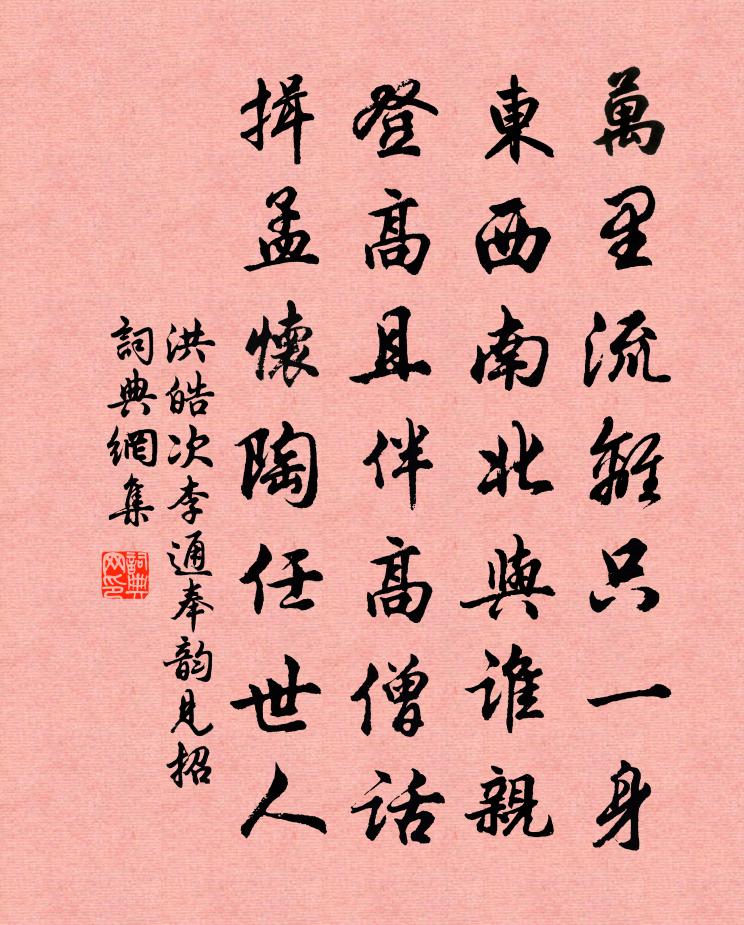 萬里流離只一身
東西南北與誰親
登高且伴高僧話
揖孟懷陶任世人
洪皓次李通奉韵見招
詞典網集
詞典網印